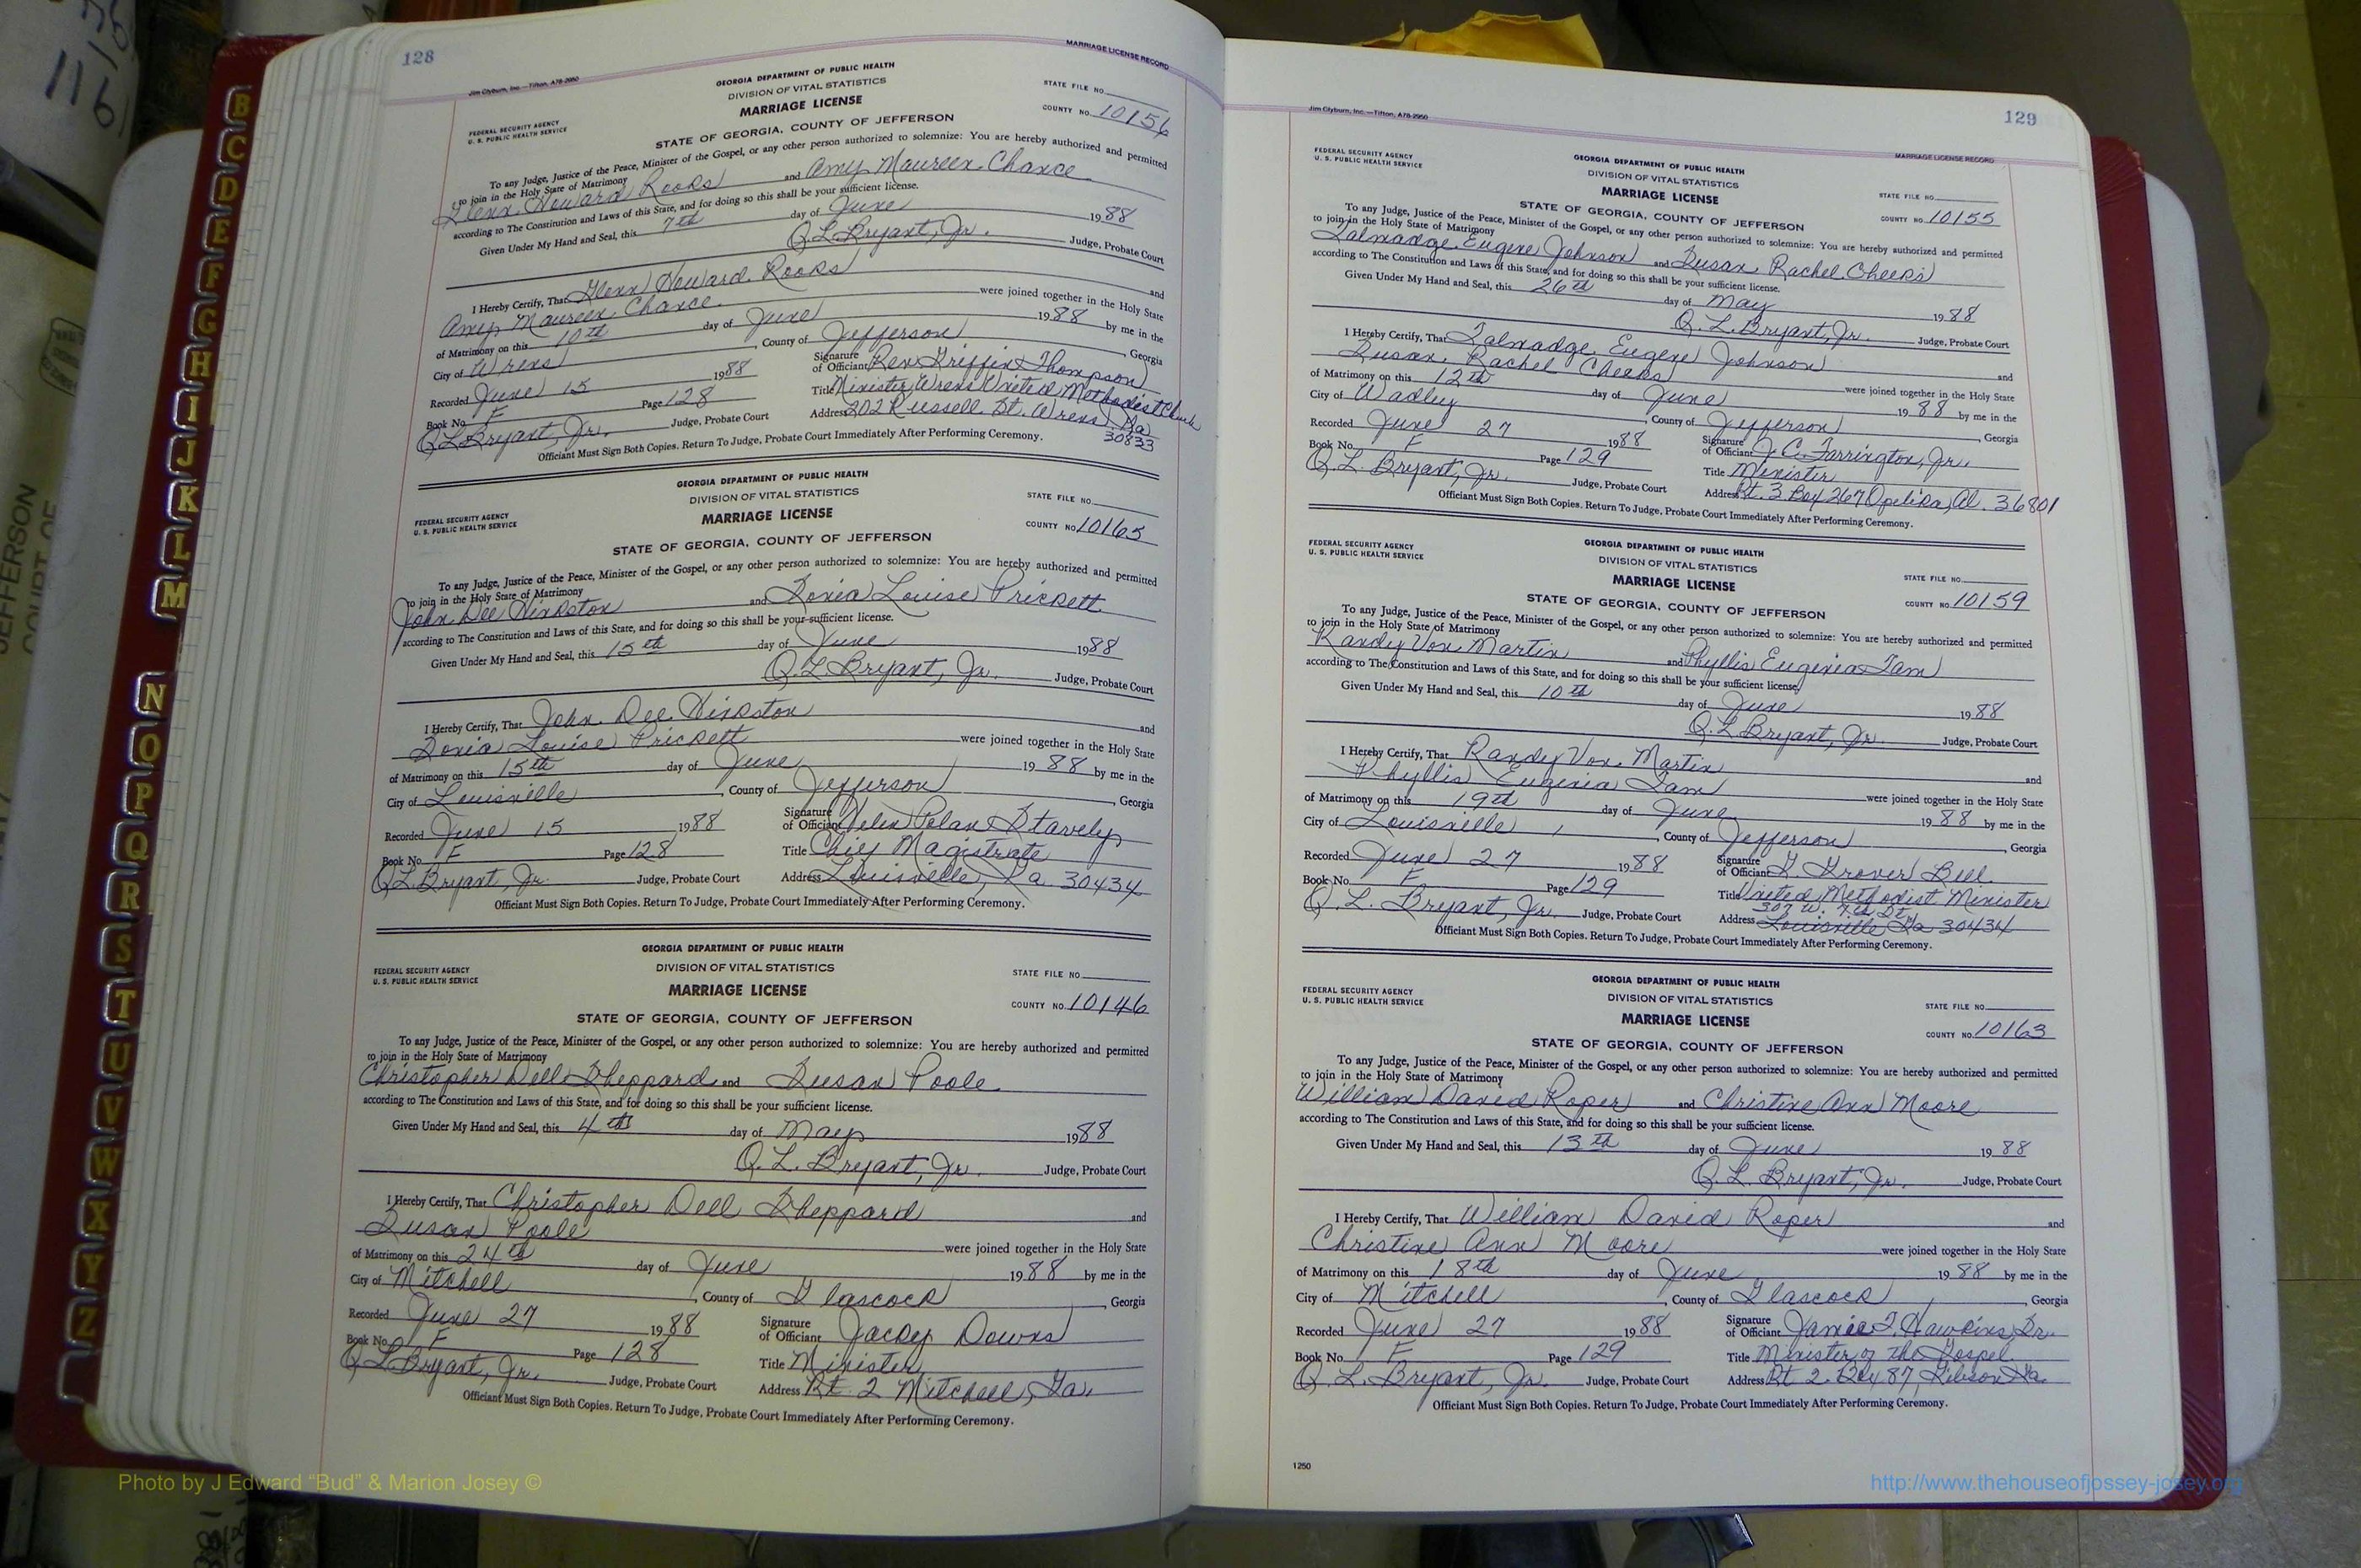 128
MARRIAGE LICENSE RECORD
Jim Clyburn, Inc.—Tifton, A78-2950
GEORGIA DEPARTMENT OF PUBLIC HEALTH
DIVISION OF VITAL STATISTICS
MARRIAGE LICENSE
STATE OF GEORGIA, COUNTY OF JEFFERSON
FEDERAL SECURITY AGENCY
U. S. PUBLIC HEALTH SERVICE
STATE FILE NO.
COUNTY NO. 10156
To any Judge, Justice of the Peace, Minister of the Gospel, or any other person authorized to solemnize: You are hereby authorized and permitted
to join in the Holy State of Matrimony
Glenn Howard Rooks and Amy Maureen Chance
according to The Constitution and Laws of this State, and for doing so this shall be your sufficient license.
Given Under My Hand and Seal, this 7th day of June 1988
Q.L. Bryant, Jr. Judge, Probate Court
I Hereby Certify, That Glenn Howard Rooks and
Amy Maureen Chance were joined together in the Holy State
of Matrimony on this 10th day of June 1988 by me in the
City of Wrens, County of Jefferson, Georgia
Recorded June 15 1988
Signature of Officiant Rev Griffin Thompson
Book No. F Page 128
Title Minister, Wrens United Methodist Church
Q.L. Bryant, Jr. Judge, Probate Court
Address 202 Russell St. Wrens, Ga 30833
Officiant Must Sign Both Copies. Return To Judge, Probate Court Immediately After Performing Ceremony.
GEORGIA DEPARTMENT OF PUBLIC HEALTH
DIVISION OF VITAL STATISTICS
MARRIAGE LICENSE
STATE OF GEORGIA, COUNTY OF JEFFERSON
FEDERAL SECURITY AGENCY
U. S. PUBLIC HEALTH SERVICE
STATE FILE NO.
COUNTY NO. 10165
To any Judge, Justice of the Peace, Minister of the Gospel, or any other person authorized to solemnize: You are hereby authorized and permitted
to join in the Holy State of Matrimony
John Dee Hinkston and Sonia Louise Prickett
according to The Constitution and Laws of this State, and for doing so this shall be your sufficient license.
Given Under My Hand and Seal, this 15th day of June 1988
Q.L. Bryant, Jr. Judge, Probate Court
I Hereby Certify, That John Dee Hinkston and
Sonia Louise Prickett were joined together in the Holy State
of Matrimony on this 15th day of June 1988 by me in the
City of Louisville, County of Jefferson, Georgia
Recorded June 15 1988
Signature of Officiant Helen Stavely
Book No. F Page 128
Title Chief Magistrate
Q.L. Bryant, Jr. Judge, Probate Court
Address Louisville, Ga. 30434
Officiant Must Sign Both Copies. Return To Judge, Probate Court Immediately After Performing Ceremony.
GEORGIA DEPARTMENT OF PUBLIC HEALTH
DIVISION OF VITAL STATISTICS
MARRIAGE LICENSE
STATE OF GEORGIA, COUNTY OF JEFFERSON
FEDERAL SECURITY AGENCY
U. S. PUBLIC HEALTH SERVICE
STATE FILE NO.
COUNTY NO. 10146
To any Judge, Justice of the Peace, Minister of the Gospel, or any other person authorized to solemnize: You are hereby authorized and permitted
to join in the Holy State of Matrimony
Christopher Dell Sheppard and Susan Poole
according to The Constitution and Laws of this State, and for doing so this shall be your sufficient license.
Given Under My Hand and Seal, this 4th day of May 1988
Q.L. Bryant, Jr. Judge, Probate Court
I Hereby Certify, That Christopher Dell Sheppard and
Susan Poole were joined together in the Holy State
of Matrimony on this 24th day of June 1988 by me in the
City of Mitchell, County of Glascock, Georgia
Recorded June 27 1988
Signature of Officiant Jackey Downs
Book No. F Page 128
Title Minister
Q.L. Bryant, Jr. Judge, Probate Court
Address Rt. 2 Mitchell, Ga.
Officiant Must Sign Both Copies. Return To Judge, Probate Court Immediately After Performing Ceremony.
129
Jim Clyburn, Inc.—Tifton, A78-2950
MARRIAGE LICENSE RECORD
GEORGIA DEPARTMENT OF PUBLIC HEALTH
DIVISION OF VITAL STATISTICS
MARRIAGE LICENSE
STATE OF GEORGIA, COUNTY OF JEFFERSON
FEDERAL SECURITY AGENCY
U. S. PUBLIC HEALTH SERVICE
STATE FILE NO.
COUNTY NO. 10155
To any Judge, Justice of the Peace, Minister of the Gospel, or any other person authorized to solemnize: You are hereby authorized and permitted
to join in the Holy State of Matrimony
Talmadge Eugene Johnson and Susan Rachel Cheeks
according to The Constitution and Laws of this State, and for doing so this shall be your sufficient license.
Given Under My Hand and Seal, this 26th day of May 1988
Q.L. Bryant, Jr. Judge, Probate Court
I Hereby Certify, That Talmadge Eugene Johnson and
Susan Rachel Cheeks were joined together in the Holy State
of Matrimony on this 12th day of June 1988 by me in the
City of Wadley, County of Jefferson, Georgia
Recorded June 27 1988
Signature of Officiant J.C. Farrington, Jr.
Book No. F Page 129
Title Minister
Q.L. Bryant, Jr. Judge, Probate Court
Address Rt. 3 Box 267 Opelika, Al. 36801
Officiant Must Sign Both Copies. Return To Judge, Probate Court Immediately After Performing Ceremony.
GEORGIA DEPARTMENT OF PUBLIC HEALTH
DIVISION OF VITAL STATISTICS
MARRIAGE LICENSE
STATE OF GEORGIA, COUNTY OF JEFFERSON
FEDERAL SECURITY AGENCY
U. S. PUBLIC HEALTH SERVICE
STATE FILE NO.
COUNTY NO. 10159
To any Judge, Justice of the Peace, Minister of the Gospel, or any other person authorized to solemnize: You are hereby authorized and permitted
to join in the Holy State of Matrimony
Randy Von Martin and Phyllis Eugenia Tam
according to The Constitution and Laws of this State, and for doing so this shall be your sufficient license.
Given Under My Hand and Seal, this 10th day of June 1988
Q.L. Bryant, Jr. Judge, Probate Court
I Hereby Certify, That Randy Von Martin and
Phyllis Eugenia Tam were joined together in the Holy State
of Matrimony on this 19th day of June 1988 by me in the
City of Louisville, County of Jefferson, Georgia
Recorded June 27 1988
Signature of Officiant Grover Bell
Book No. F Page 129
Title United Methodist Minister
307 W. 7th St.
Q.L. Bryant, Jr. Judge, Probate Court
Address Louisville Ga 30434
Officiant Must Sign Both Copies. Return To Judge, Probate Court Immediately After Performing Ceremony.
GEORGIA DEPARTMENT OF PUBLIC HEALTH
DIVISION OF VITAL STATISTICS
MARRIAGE LICENSE
STATE OF GEORGIA, COUNTY OF JEFFERSON
FEDERAL SECURITY AGENCY
U. S. PUBLIC HEALTH SERVICE
STATE FILE NO.
COUNTY NO. 10163
To any Judge, Justice of the Peace, Minister of the Gospel, or any other person authorized to solemnize: You are hereby authorized and permitted
to join in the Holy State of Matrimony
William David Roper and Christine Ann Moore
according to The Constitution and Laws of this State, and for doing so this shall be your sufficient license.
Given Under My Hand and Seal, this 13th day of June 1988
Q.L. Bryant, Jr. Judge, Probate Court
I Hereby Certify, That William David Roper and
Christine Ann Moore were joined together in the Holy State
of Matrimony on this 18th day of June 1988 by me in the
City of Mitchell, County of Glascock, Georgia
Recorded June 27 1988
Signature of Officiant Hawkins, Sr.
Book No. F Page 129
Title Minister of the Gospel
Q.L. Bryant, Jr. Judge, Probate Court
Address Rt. 2 Box 87, Gibson Ga.
Officiant Must Sign Both Copies. Return To Judge, Probate Court Immediately After Performing Ceremony.
1250
B
C
D
E
F
G
H
I
J
K
L
M
N
O
P
Q
R
S
T
U
V
W
X
Y
Z
JEFFERSON
COURT OF
Photo by J Edward “Bud” & Marion Josey ©
http://www.thehouseofjossey-josey.org